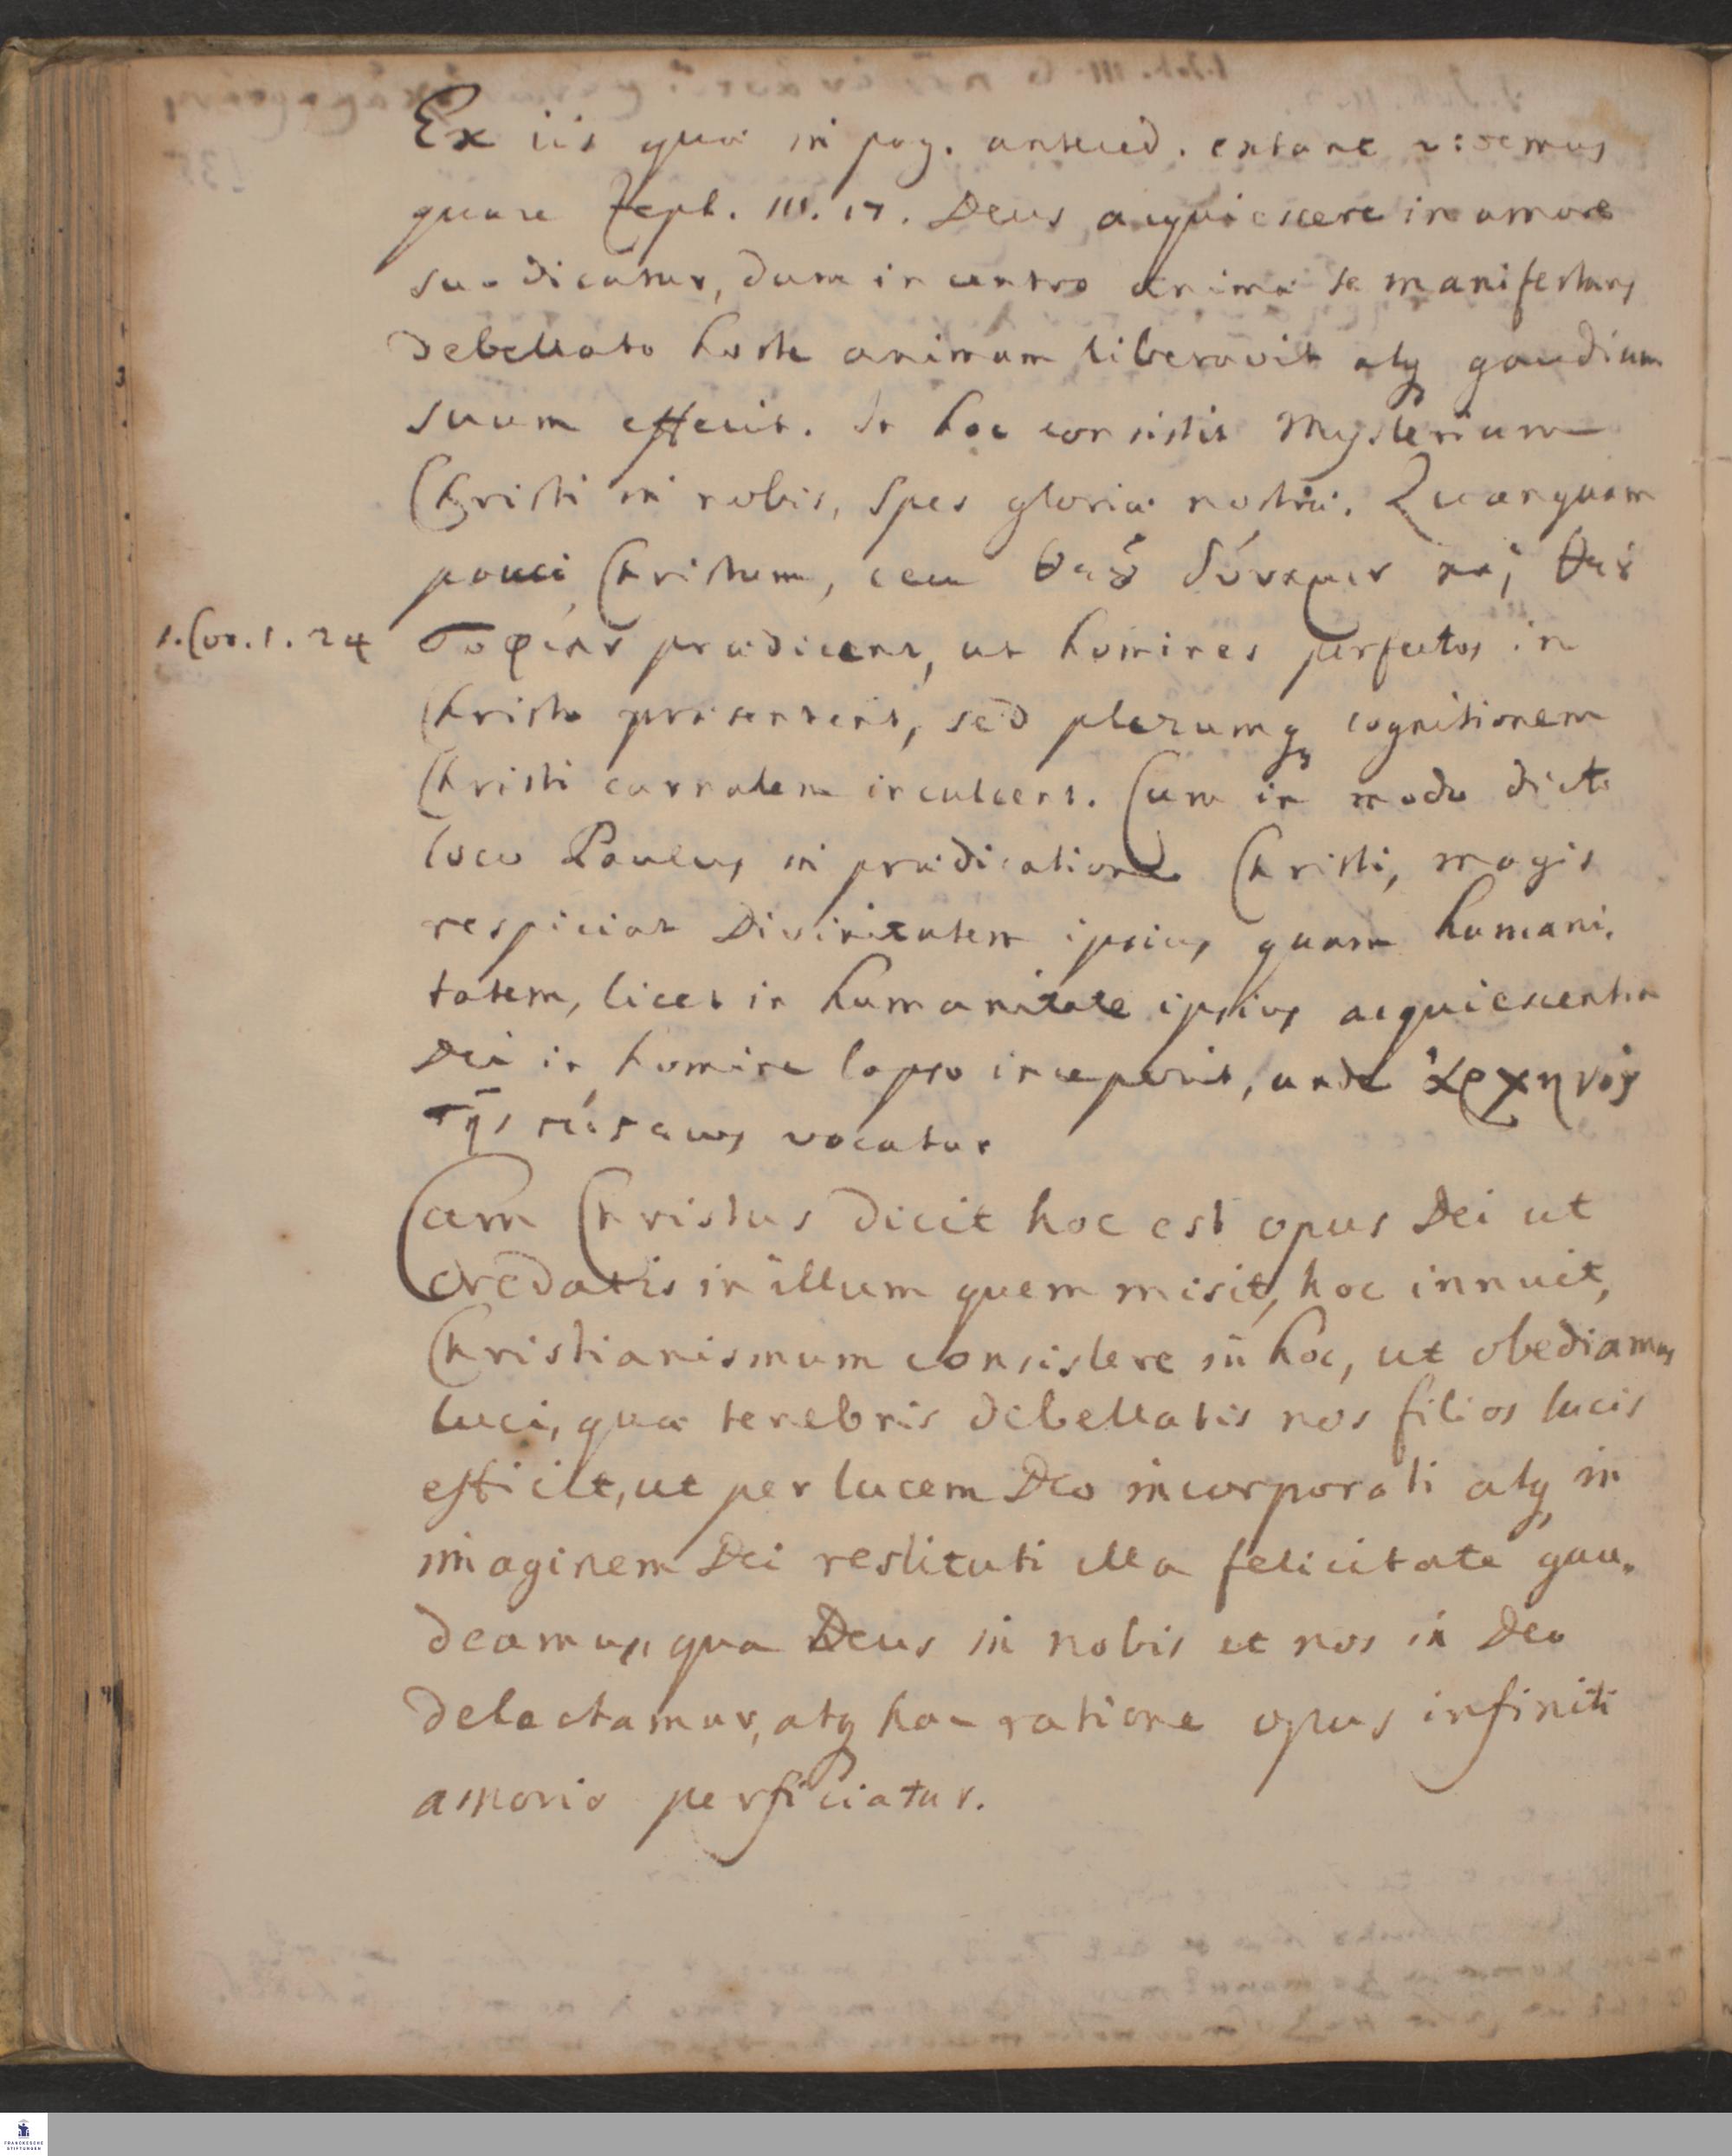 Ex iis quæ in pag. anteced. extant videmus
quare Zeph. III. 17. Deus acquiescere in amore
suo dicatur, dum in centro animæ se manifestans
debellato hoste animam liberavit atq gaudium
suum effecit. In hoc consistit Mysterium
Christi in nobis, spes gloriæ nostræ. Quanquam
pauci Christum, ceu θεοῦ δύναμιν καὶ θεοῦ
1. Cor. 1. 24 σοφίαν prædicent, ut homines perfectos in
Christo præsentent, sed plerumq cognitionem
Christi carnalem inculcent. Cum in modo dicto
loco Paulus in prædicatione Christi, magis
respiciat Divinitatem ipsius quam humani,
tatem, licet in humanitate ipsius acquiescentia
Dei in homine lapso inceperit, unde ἀρχηγὸς
τῆς πίστεως vocatur
Cum Christus dicit hoc est opus Dei ut
credatis in illum quem misit, hoc innuit,
Christianismum consistere in hoc, ut obediamus
luci, quæ tenebris debellatis nos filios lucis
efficit, ut per lucem Deo incorporati atq in
imaginem Dei restituti illa felicitate gau,
deamus, qua Deus in nobis et nos in Deo
delectamur, atq hac ratione opus infiniti
amoris perficiatur.
FRANCKESCHE
STIFTUNGEN